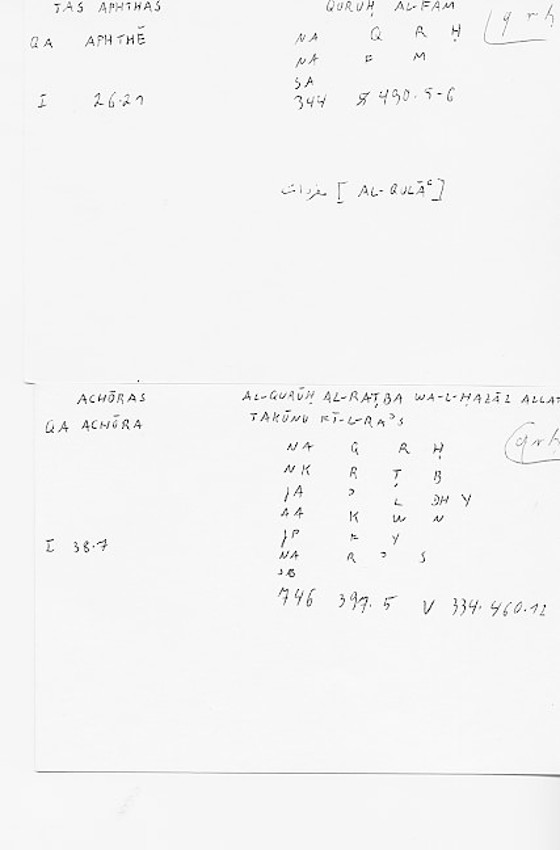 TAS APHTHAS QURUḤ AL-FAM q r ḥ
QA APHTHĒ NA Q R Ḥ
NA F M
SA
I 26.21 344 490.5-6
مفردات [ AL-QULĀʿ ]
ACHŌRAS AL-QURŪḤ AL-RAṬBA WA-L-ḤAZĀZ ALLAT
QA ACHŌRA TAKŪNU FĪ-L-RAʾS
NA Q R Ḥ qrḥ
NK R Ṭ B
JA ʾ L DH Y
AA K W N
JP F Y
I 38.7 NA R ʾ S
746 397.5 V 334.460.12